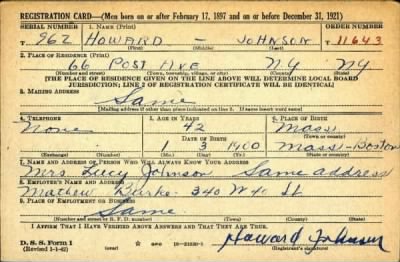 REGISTRATION CARD—(Men born on or after February 17, 1897 and on or before December 31, 1921)
SERIAL NUMBER 1. NAME (Print) ORDER NUMBER
T 962 HOWARD — JOHNSON T 11643
(First) (Middle) (Last)
2. PLACE OF RESIDENCE (Print)
66 POST AVE N.Y NY
(Number and street) (Town, township, village, or city) (County) (State)
[THE PLACE OF RESIDENCE GIVEN ON THE LINE ABOVE WILL DETERMINE LOCAL BOARD
JURISDICTION; LINE 2 OF REGISTRATION CERTIFICATE WILL BE IDENTICAL]
3. MAILING ADDRESS
Same
[Mailing address if other than place indicated on line 2. If same insert word same]
4. TELEPHONE 5. AGE IN YEARS 6. PLACE OF BIRTH
None 42 Mass
DATE OF BIRTH (Town or county)
1 3 1900 Mass-Boston
(Exchange) (Number) (Mo.) (Day) (Yr.) (State or country)
7. NAME AND ADDRESS OF PERSON WHO WILL ALWAYS KNOW YOUR ADDRESS
Mrs. Lucy Johnson Same address
8. EMPLOYER'S NAME AND ADDRESS
Mathew 340 W 40 St
9. PLACE OF EMPLOYMENT OR BUSINESS
Same
(Number and street or R. F. D. number) (Town) (County) (State)
I AFFIRM THAT I HAVE VERIFIED ABOVE ANSWERS AND THAT THEY ARE TRUE.
D. S. S. Form 1
(Revised 1-1-42) Howard Johnson